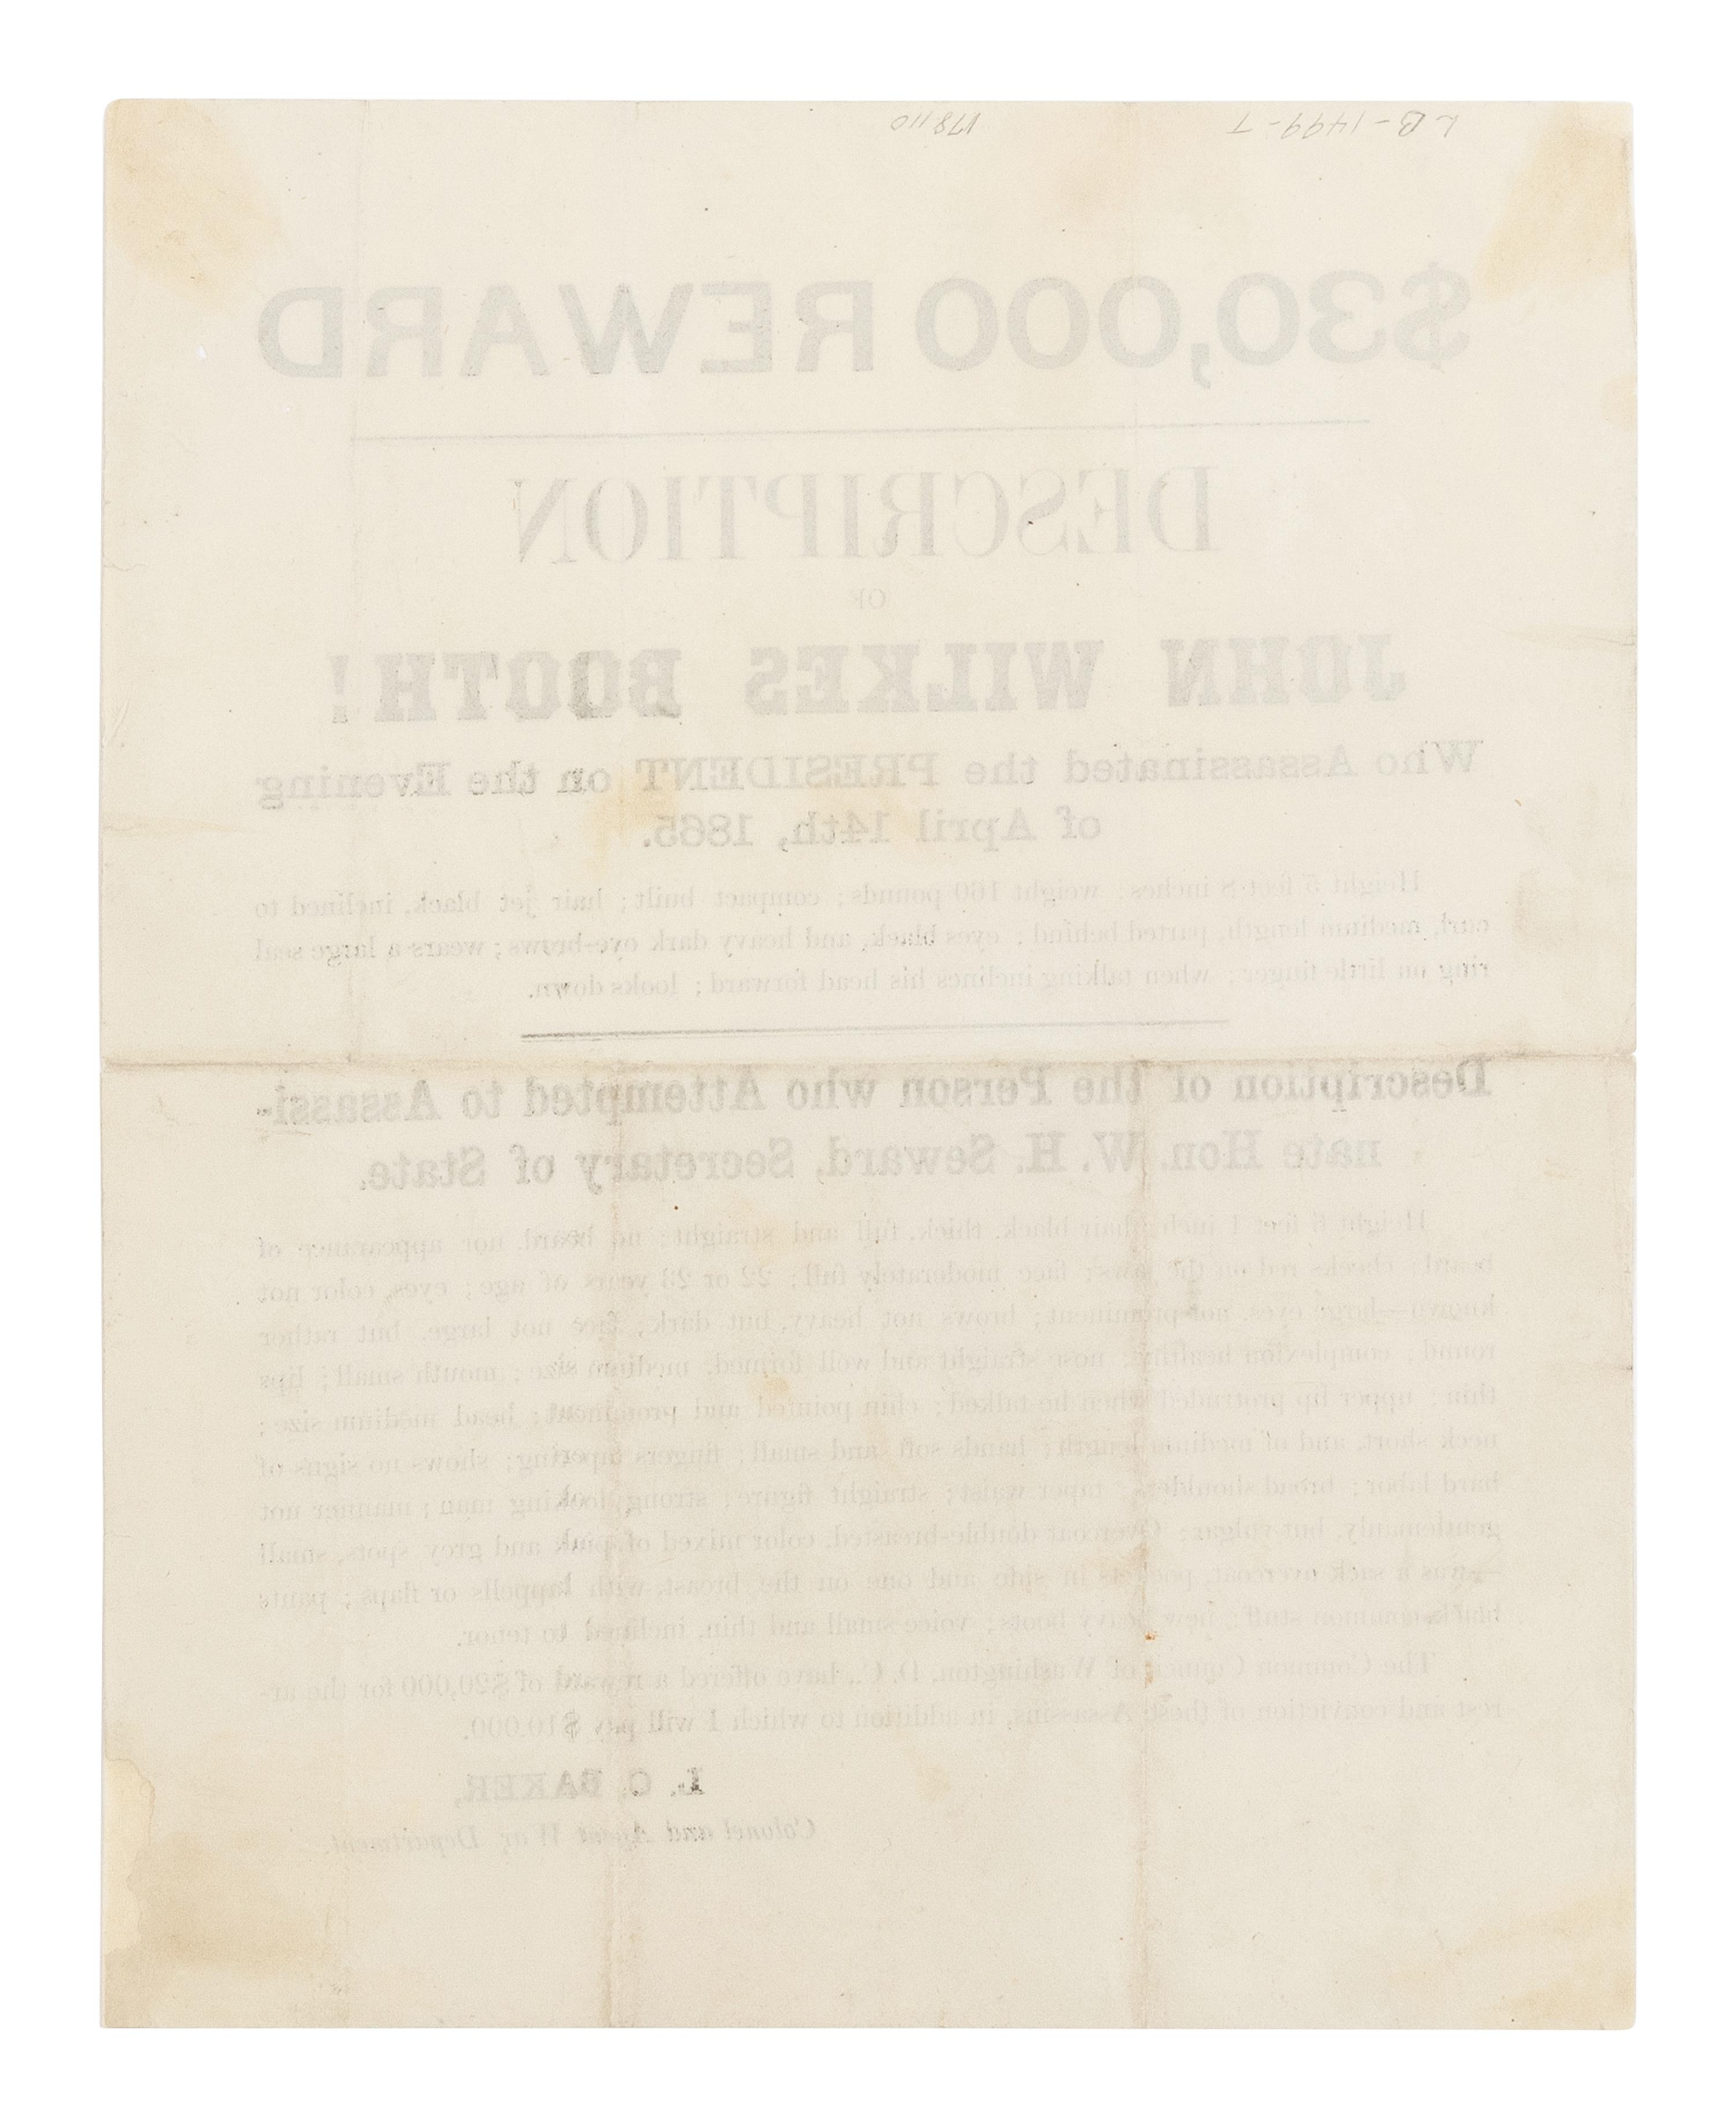 LB-1499-T
V78110
$30,000 REWARD
DESCRIPTION
OF
JOHN WILKES BOOTH!
Who Assassinated the PRESIDENT on the Evening
of April 14th, 1865.
Height 5 feet 8 inches; weight 160 pounds; compact built; hair jet black, inclined to
curl, medium length, parted behind; eyes black, and heavy dark eye-brows; wears a large seal
ring on little finger; when talking inclines his head forward; looks down.
Description of the Person who Attempted to Assassi-
nate Hon. W. H. Seward, Secretary of State.
Height 6 feet 1 inch; hair black, thick, full and straight; no beard, nor appearance of
beard; cheeks red on the jaws; face moderately full; 22 or 23 years of age; eyes, color not
known—large eyes, not prominent; brows not heavy, but dark; face not large, but rather
round; complexion healthy; nose straight and well formed, medium size; mouth small; lips
thin; upper lip protruded when he talked; chin pointed and prominent; head medium size;
neck short, and of medium length; hands soft and small; fingers tapering; shows no signs of
hard labor; broad shoulders; taper waist; straight figure; strong looking man; manner not
gentlemanly, but vulgar; Overcoat double-breasted, color mixed of pink and grey spots, small
—was a sack overcoat, pockets in side and one on the breast, with lappells or flaps; pants
black, common stuff; new heavy boots; voice small and thin, inclined to tenor.
The Common Council of Washington, D. C., have offered a reward of $20,000 for the ar-
rest and conviction of these Assassins, in addition to which I will pay $10,000.
L. C. BAKER,
Colonel and Agent War Department.